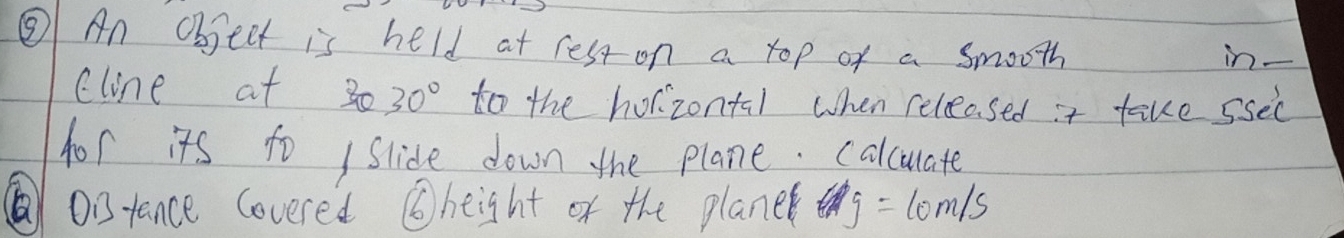 ⑨ An Object is held at rest on a top of a smooth in-
cline at 30° to the horizontal when released it take 5sec
for its to slide down the plane. Calculate
ⓐ Distance Covered ⓑ height of the plane g = 10m/s